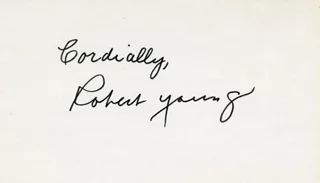 Cordially,
Robert Young